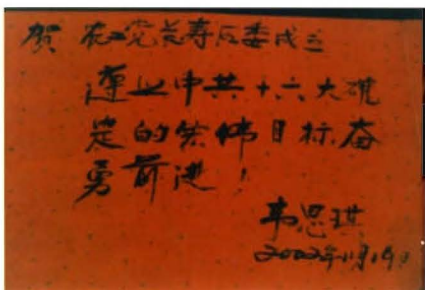 贺 农工党长寿区委成立
遵照中共十六大确
定的宏伟目标奋
勇前进！
韦思琪
2002年11月19日